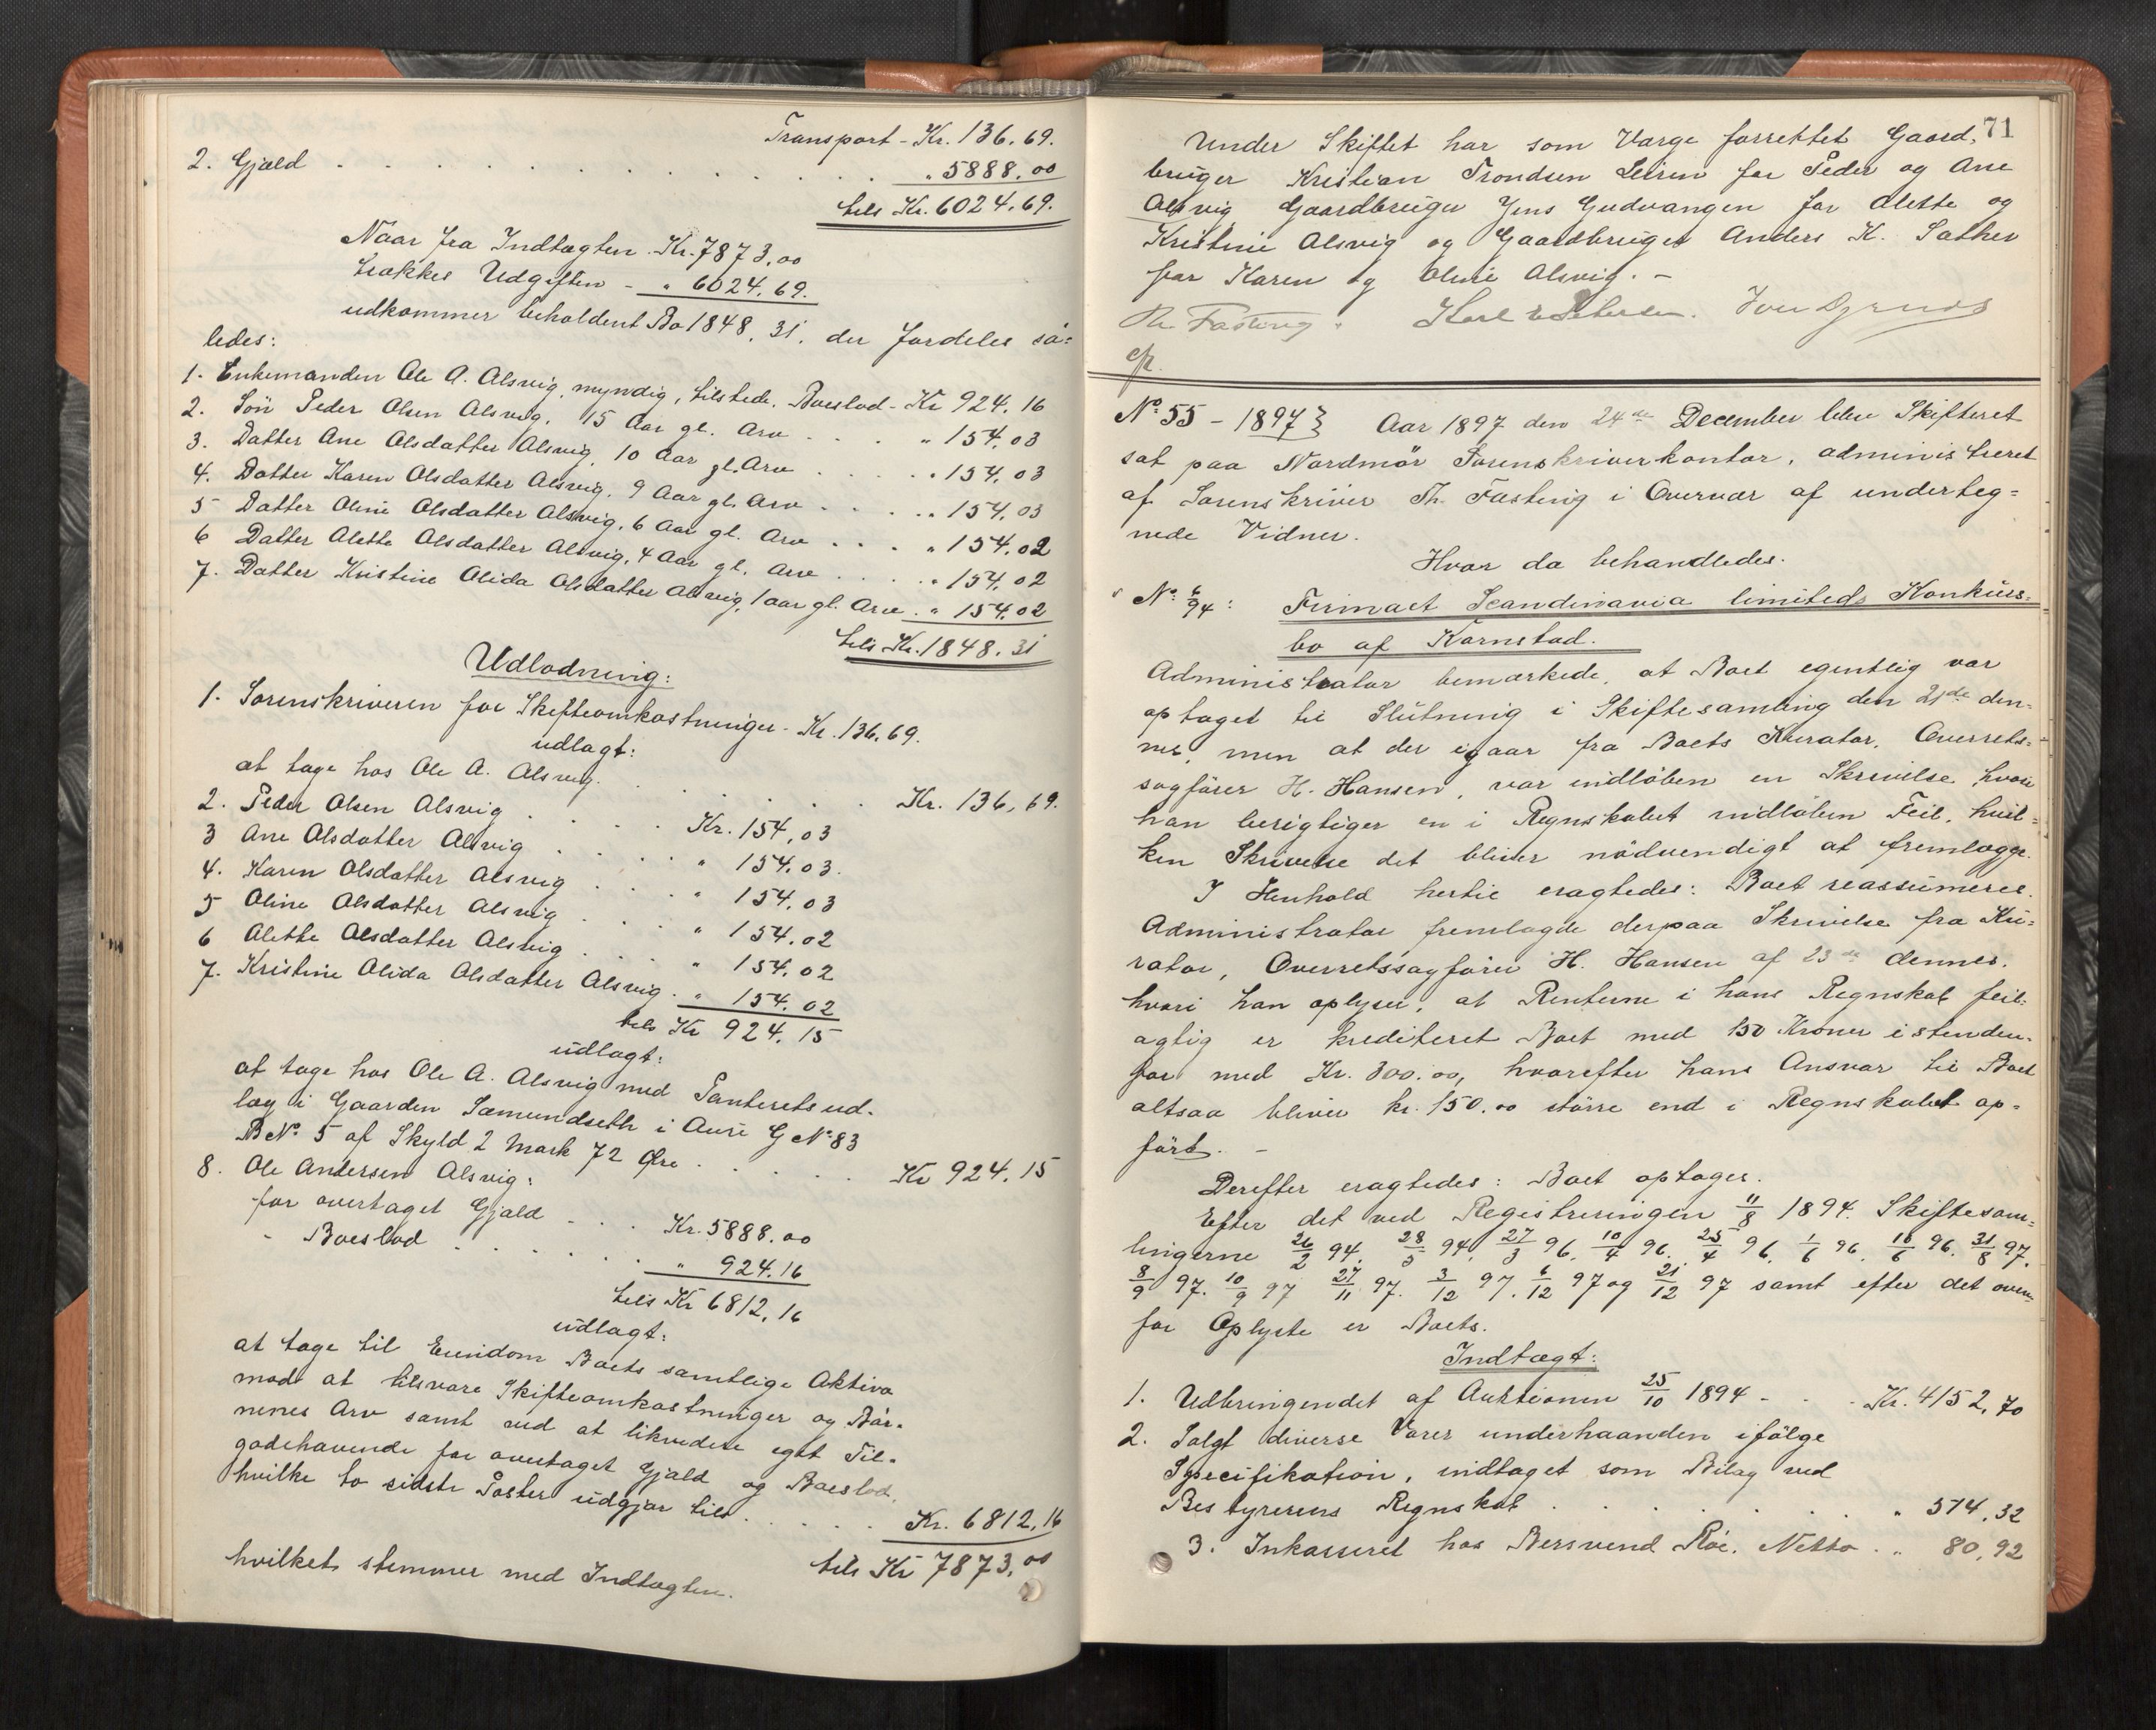 Transport - Kr. 136.69.
2. Gjæld . . . . . . . . . . . . „ 5888.00
tils Kr. 6024.69.
Naar fra Indtægten - Kr. 7873.00
trækkes Udgiften - „ 6024.69.
udkommer beholdent Bo 1848.31. der fordeles så=
ledes:
1. Enkemanden Ole A. Alsvig, myndig, tilstede. Boeslod - Kr 924.16
2. Søn Peder Olsen Alsvig, 15 Aar gl. Arv . . . . „ 154.03
3. Datter Ane Olsdatter Alsvig, 10 Aar gl. Arv . . . . „ 154.03
4. Datter Karen Olsdatter Alsvig, 9 Aar gl. Arv . . . . „ 154.03
5 Datter Oline Olsdatter Alsvig, 6 Aar gl. Arv . . . . „ 154.02
6 Datter Alette Olsdatter Alsvig, 4 Aar gl. Arv . . . . „ 154.02
7. Datter Kristine Olida Olsdatter Alsvig, 1 aar gl. Arv . „ 154.02
tils Kr. 1848.31
Udlodning:
1. Sorenskriveren for Skifteomkostninger - Kr. 136.69.
udlagt:
at tage hos Ole A. Alsvig. . . . . . . Kr. 136,69.
2. Peder Olsen Alsvig . . . . Kr. 154,03
3 Ane Olsdatter Alsvig . . . . „ 154.03.
4. Karen Olsdatter Alsvig . . . „ 154.03
5 Oline Olsdatter Alsvig . . . „ 154.02
6 Alette Olsdatter Alsvig . . . „ 154.02
7. Kristine Olida Olsdatter Alsvig . „ 154.02
tils Kr 924.15
udlagt:
at tage hos Ole A. Alsvig med Panteretsud-
læg i Gaarden Sæmundseth i Aure G No 83
B No 5 af Skyld 2 Mark 72 Øre . . . . . Kr 924.15
8. Ole Andersen Alsvig:
for overtaget Gjæld . . . Kr. 5888.00
- Boeslod . . . . . . „ 924.16
tils Kr 6812,16
udlagt:
at tage til Eiendom Boets samtlige Aktiva
mod at tilsvare Skifteomkostninger og Bør-
nenes Arv samt ved at likvidere eget Til-
godehavende for overtaget Gjæld og Boeslod,
hvilke to sidste Poster udgjør tils . . . . . Kr. 6812,16
tils Kr 7873,00
hvilket stemmer med Indtægten.
71
Under Skiftet har som Værge forrettet Gaard,
bruger Kristian Trondsen Leiren for Peder og Ane
Alsvig Gaardbruger Jens Gudvangen for Alette og
Kristine Alsvig og Gaardbruger Anders K. Sæther
for Karen og Oline Alsvig. -
Th. Fasting. Karl Petersen.
cfr.
No 55 - 1897 } Aar 1897 den 24de December blev Skifteret
sat paa Nordmør Sorenskriverkontor, administreret
af Sorenskriver Th. Fasting i Overvær af underteg=
nede Vidner.
Hvor da behandledes.
No 6/94: Firmaet Scandinavia limiteds Konkurs=
bo af Kornstad.
Administrator bemærkede, at Boet egentlig var
optaget til Slutning i Skiftesamling den 21de den=
nes, men at der igaar fra Boets Kurator, Overrets=
sagfører H. Hansen, var indløben en Skrivelse hvori
han berigtiger en i Regnskabet indløben Feil, hvil=
ken Skrivelse det bliver nødvendigt at fremlægge.
I Henhold hertil eragtedes: Boet reassumeres.
Administrator fremlagde derpaa Skrivelse fra Ku=
rator, Overretssagfører H. Hansen af 23de dennes,
hvori han oplyser, at Renterne i hans Regnskab feil-
agtig er krediteret Boet med 150 Kroner istenden-
for med Kr. 300.00, hvorefter hans Ansvar til Boet
altsaa bliver kr. 150.00 større end i Regnskabet op=
ført. -
Derefter eragtedes: Boet optages.
Efter det ved Registreringen 11/8 1894. Skiftesam=
lingerne 26/2 94, 28/5 94, 27/3 96. 10/4 96. 25/4 96, 1/6 96. 10/6 96. 31/8 97.
8/9 97. 10/9 97 27/11 97. 3/12 97. 6/12 97 og 21/12 97 samt efter det oven-
for Oplyste er Boets.
Indtægt:
1. Udbringendet af Auktionen 25/10 1894 - . . Kr. 4152,70
2. Solgt diverse Varer underhaanden ifølge
Specifikation, indtaget som Bilag ved
Bestyrerens Regnskab . . . . . . . „ 574,32
3. Inkasseret hos Bersvend Røe. Netto . . „ 80,92